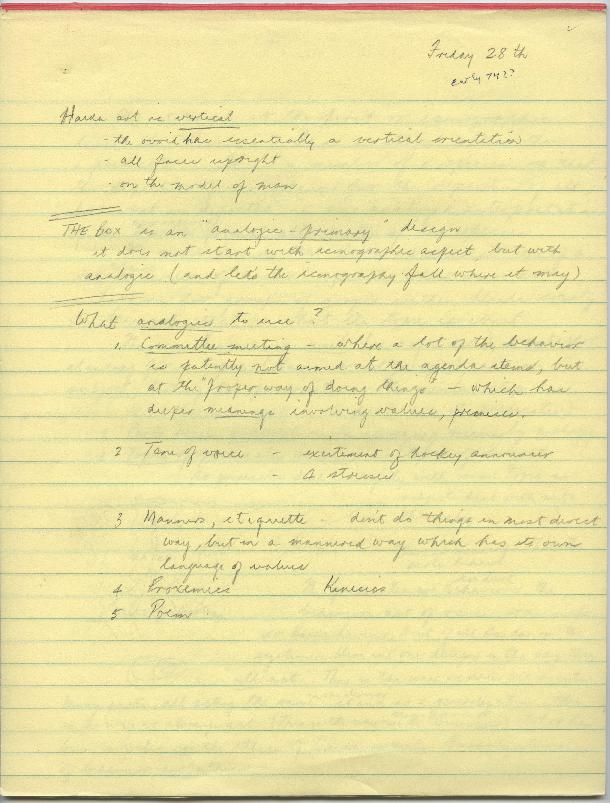 Friday 28th
early 74??
Haida art is vertical
- the ovoid has essentially a vertical orientation
- all faces upright
- on the model of man
THE BOX is an "analogic-primary" design
it does not start with iconographic aspect, but with
analogic (and let's the iconography fall where it may)
What analogic to use?
1. Committee meeting - where a lot of the behavior
is patently not aimed at the agenda items, but
at the "proper way of doing things" - which has
deeper meanings involving values, premises.
2 Tone of voice - excitement of hockey announcer
- 
3 Manners, etiquette - don't do things in most direct
way, but in a mannered way which has its own
language of values
4 Proxemics Kinesics
5 Poem